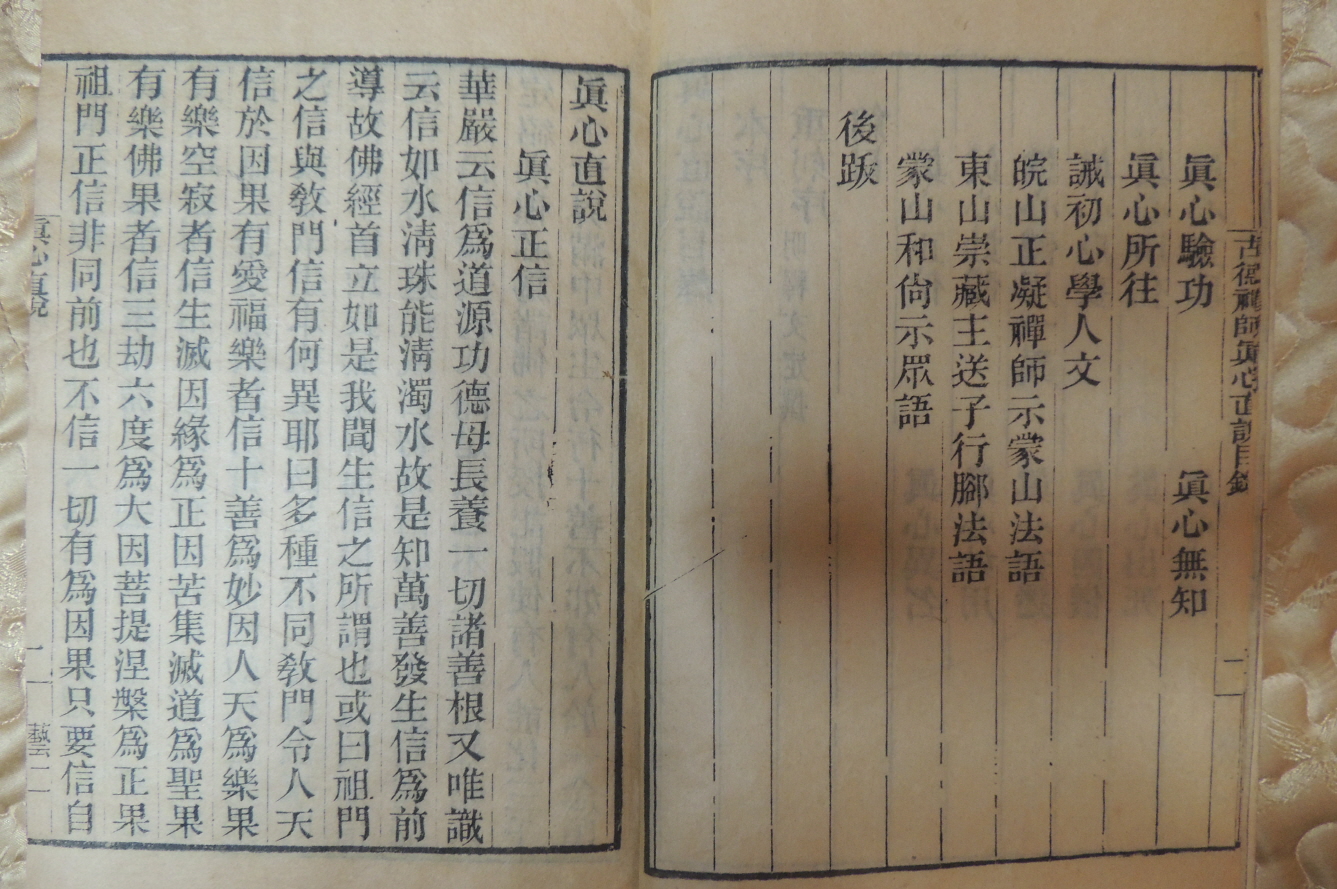 古德禪師眞心直說目錄
二
眞心驗功 眞心無知
眞心所往
誡初心學人文
皖山正凝禪師示蒙山法語
東山崇藏主送子行腳法語
蒙山和尙示眾語
後跋
眞心直說
眞心正信
華嚴云信爲道源功德母長養一切諸善根又唯識
云信如水淸珠能淸濁水故是知萬善發生信爲前
導故佛經首立如是我聞生信之所謂也或曰祖門
之信與敎門信有何異耶曰多種不同敎門令人天
信於因果有愛福樂者信十善爲妙因人天爲樂果
有樂空寂者信生滅因緣爲正因苦集滅道爲聖果
有樂佛果者信三劫六度爲大因菩提涅槃爲正果
祖門正信非同前也不信一切有爲因果只要信自
眞心直說
一
藝二